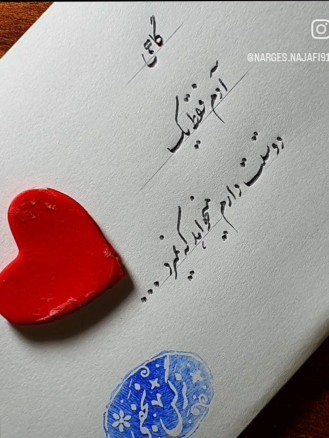 گاهی
آدم فقط یک
دوستت دارم میخواهد که بمیرد...
@NARGES.NAJAFI91